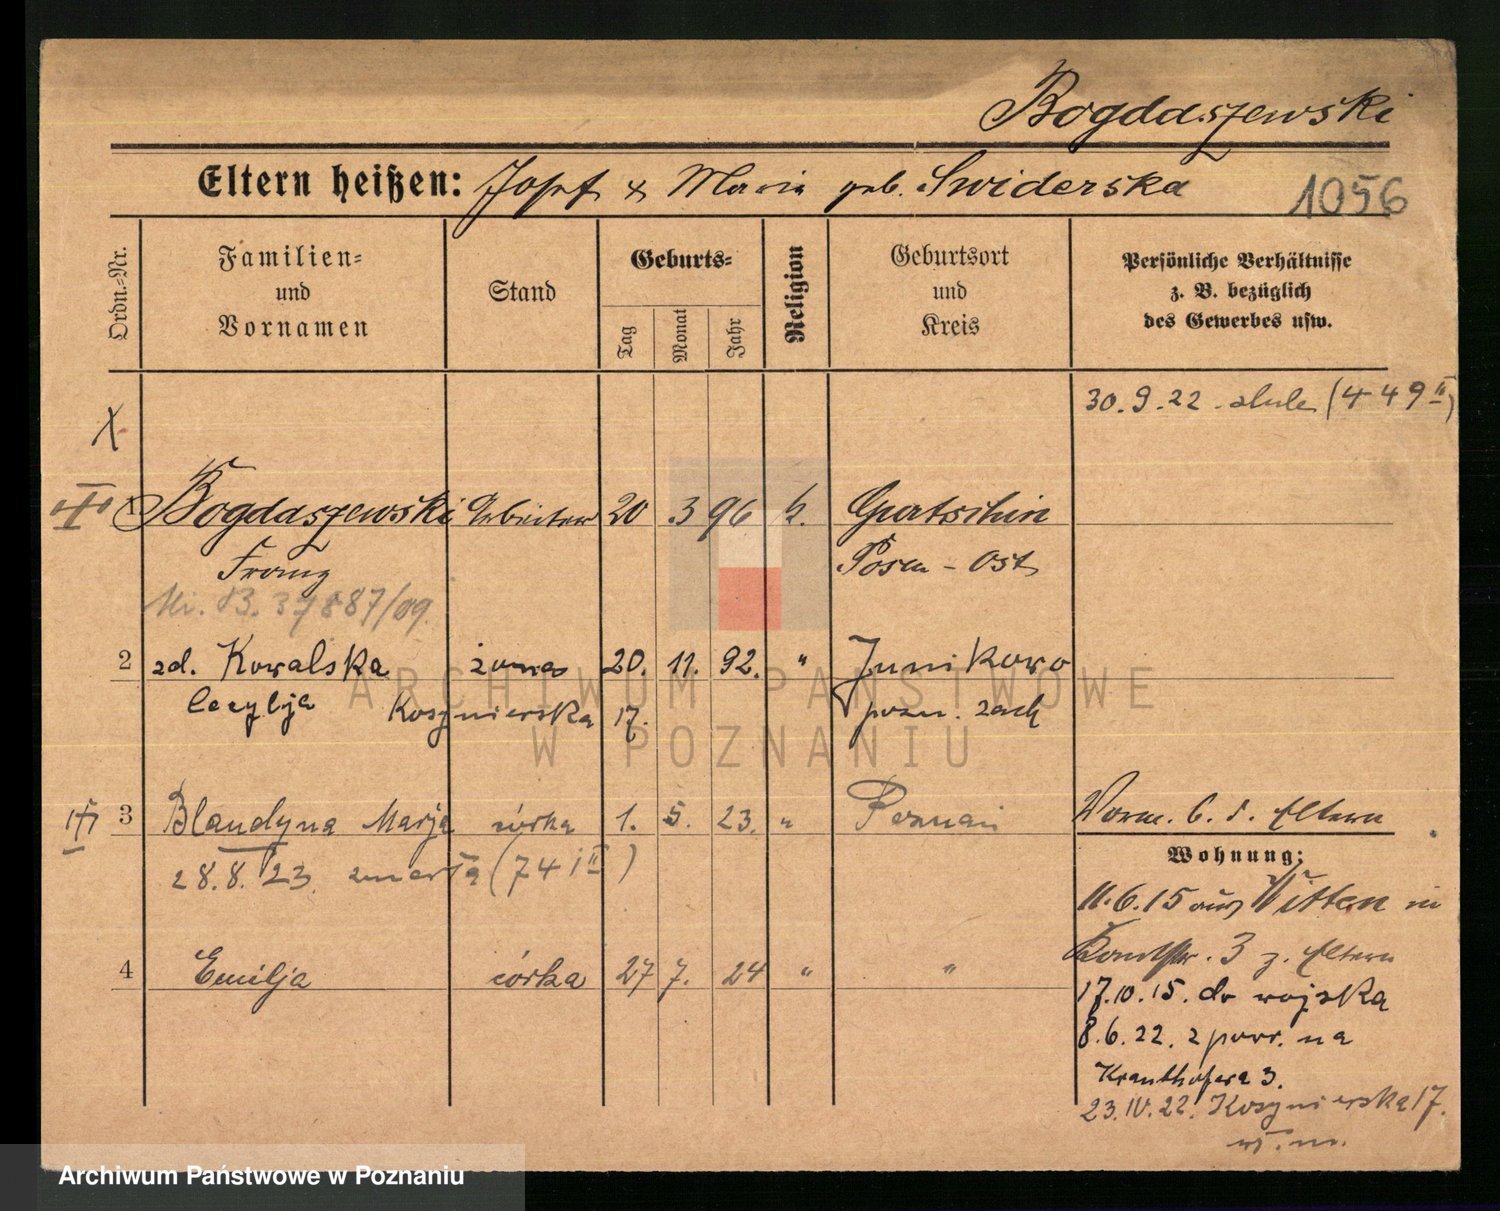 Bogdaszewski
Eltern heißen: Josef & Maria geb. Swiderska
1056
Ordn.-Nr.
Familien-
und
Vornamen
Stand
Geburts-
Tag
Monat
Jahr
Religion
Geburtsort
und
Kreis
Persönliche Verhältnisse
z. B. bezüglich
des Gewerbes usw.
30.9.22 (449 II)
1 Bogdaszewski Arbeiter 20 3 96 k. Gurtschin
Franz Posen - Ost
Mi. B. 37887/09.
2 zd. Kowalska żona 20. 11. 92. " Junikowo
Cecylja Kosynierska 17. pozn. zach
3 Blandyna Marja córka 1. 5. 23. " Poznań
28.8.23. zmarła (741 II)
4 Emilja córka 27 7. 24 " "
Vorm. b. d. Eltern
Wohnung:
11.6.15 aus Witten in
3 z. Eltern
17.10.15. do wojska
8.6.22. z powr. na
Krauthofera 3.
23.IV.22. Kosynierska 17.
ARCHIWUM PAŃSTWOWE
W POZNANIU
Archiwum Państwowe w Poznaniu